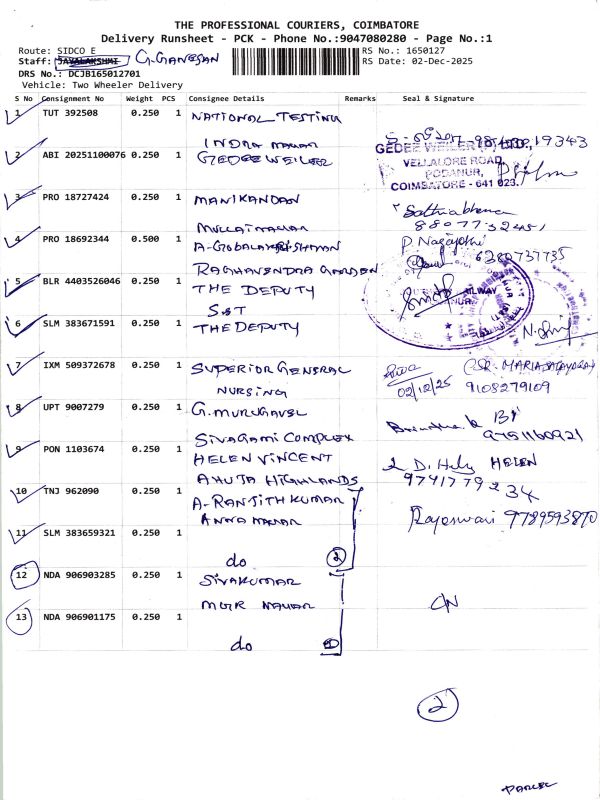 THE PROFESSIONAL COURIERS, COIMBATORE
Delivery Runsheet - PCK - Phone No.:9047080280 - Page No.:1
Route: SIDCO E
RS No.: 1650127
Staff: JAYALAKSHMI G. GANESAN
RS Date: 02-Dec-2025
DRS No.: DCJB165012701
Vehicle: Two Wheeler Delivery
S No Consignment No Weight PCS Consignee Details Remarks Seal & Signature
1 TUT 392508 0.250 1 NATIONAL TESTING
INDRA NAGAR
19343
2 ABI 20251100076 0.250 1 GEDEE WEILER
GEDEE WEILER
VELLALORE ROAD,
PODANUR,
COIMBATORE - 641 023.
3 PRO 18727424 0.250 1 MANIKANDAN
MULLAI NAGAR
Sathiabhama
8807732451
4 PRO 18692344 0.500 1 A-GOBALAKRISHNAN
RAGHAVENDRA GARDEN
P. Nagajothi
6380737735
5 BLR 4403526046 0.250 1 THE DEPUTY
S&T
6 SLM 383671591 0.250 1 THE DEPUTY
7 IXM 509372678 0.250 1 SUPERIOR GENERAL
NURSING
02/12/25
9108279109
8 UPT 9007279 0.250 1 G. MURUGAVEL
SIVAGAMI COMPLEX
9751160921
9 PON 1103674 0.250 1 HELEN VINCENT
AHUJA HIGHLANDS
HELEN
9741779234
10 TNJ 962090 0.250 1 A-RANJITH KUMAR
ANNA NAGAR
Rajeswari 9789593870
11 SLM 383659321 0.250 1
do 2
12 NDA 906903285 0.250 1 SIVAKUMAR
MGR NAGAR
CN
13 NDA 906901175 0.250 1
do
2
PARCEL